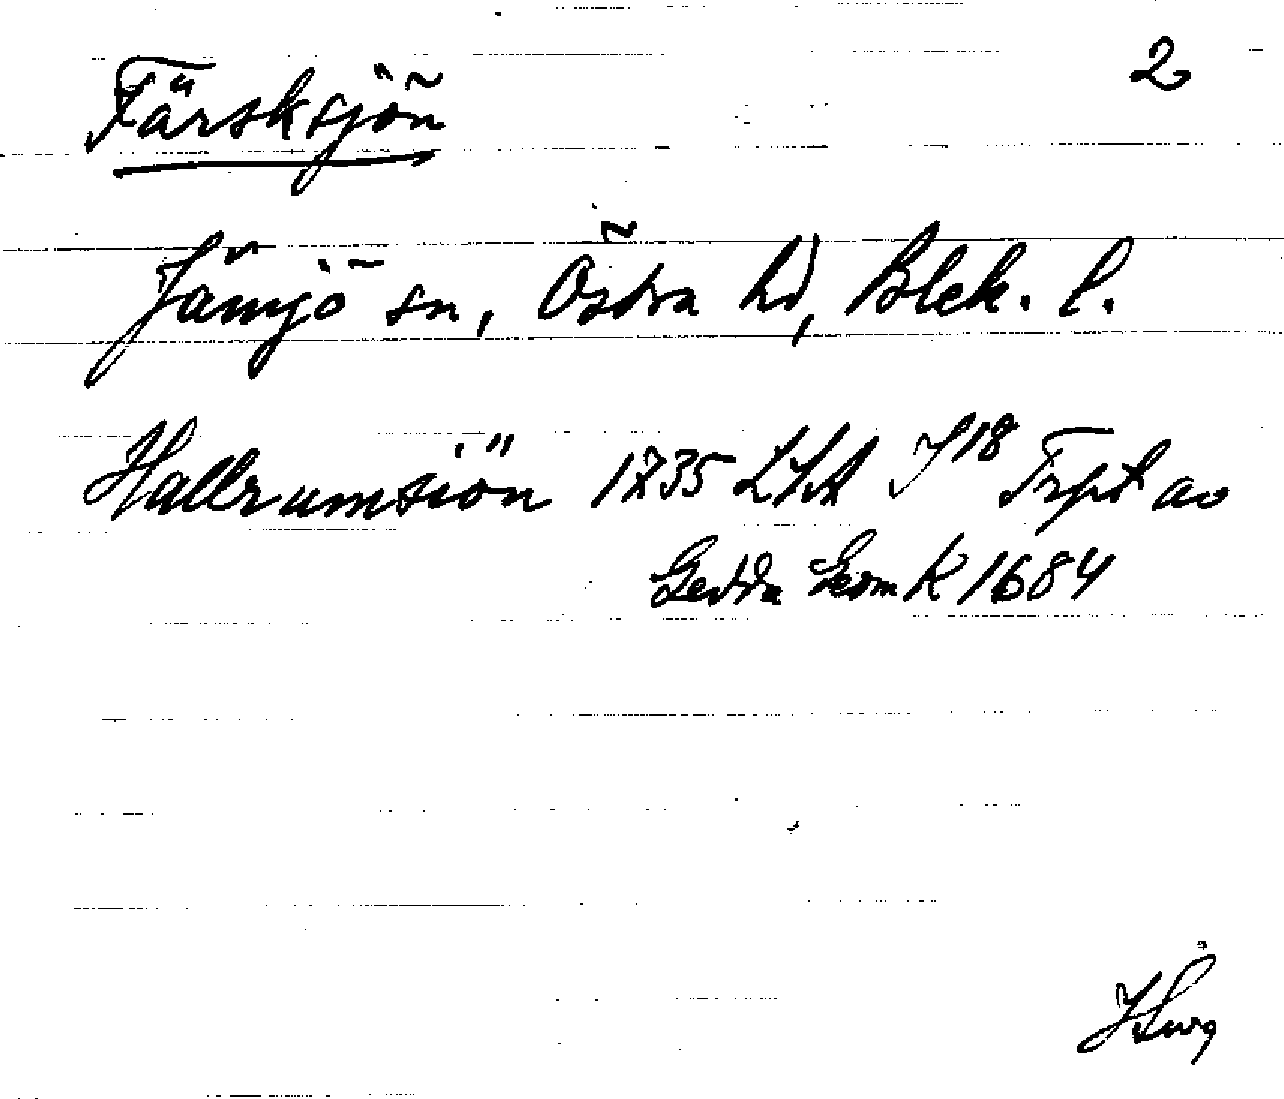 2
Färsksjön
Jämjö sn, Östra hd, Blek. l.
Hallrumsiön 1735 LSA J18 Trspt av
Gedda Geom K 1684